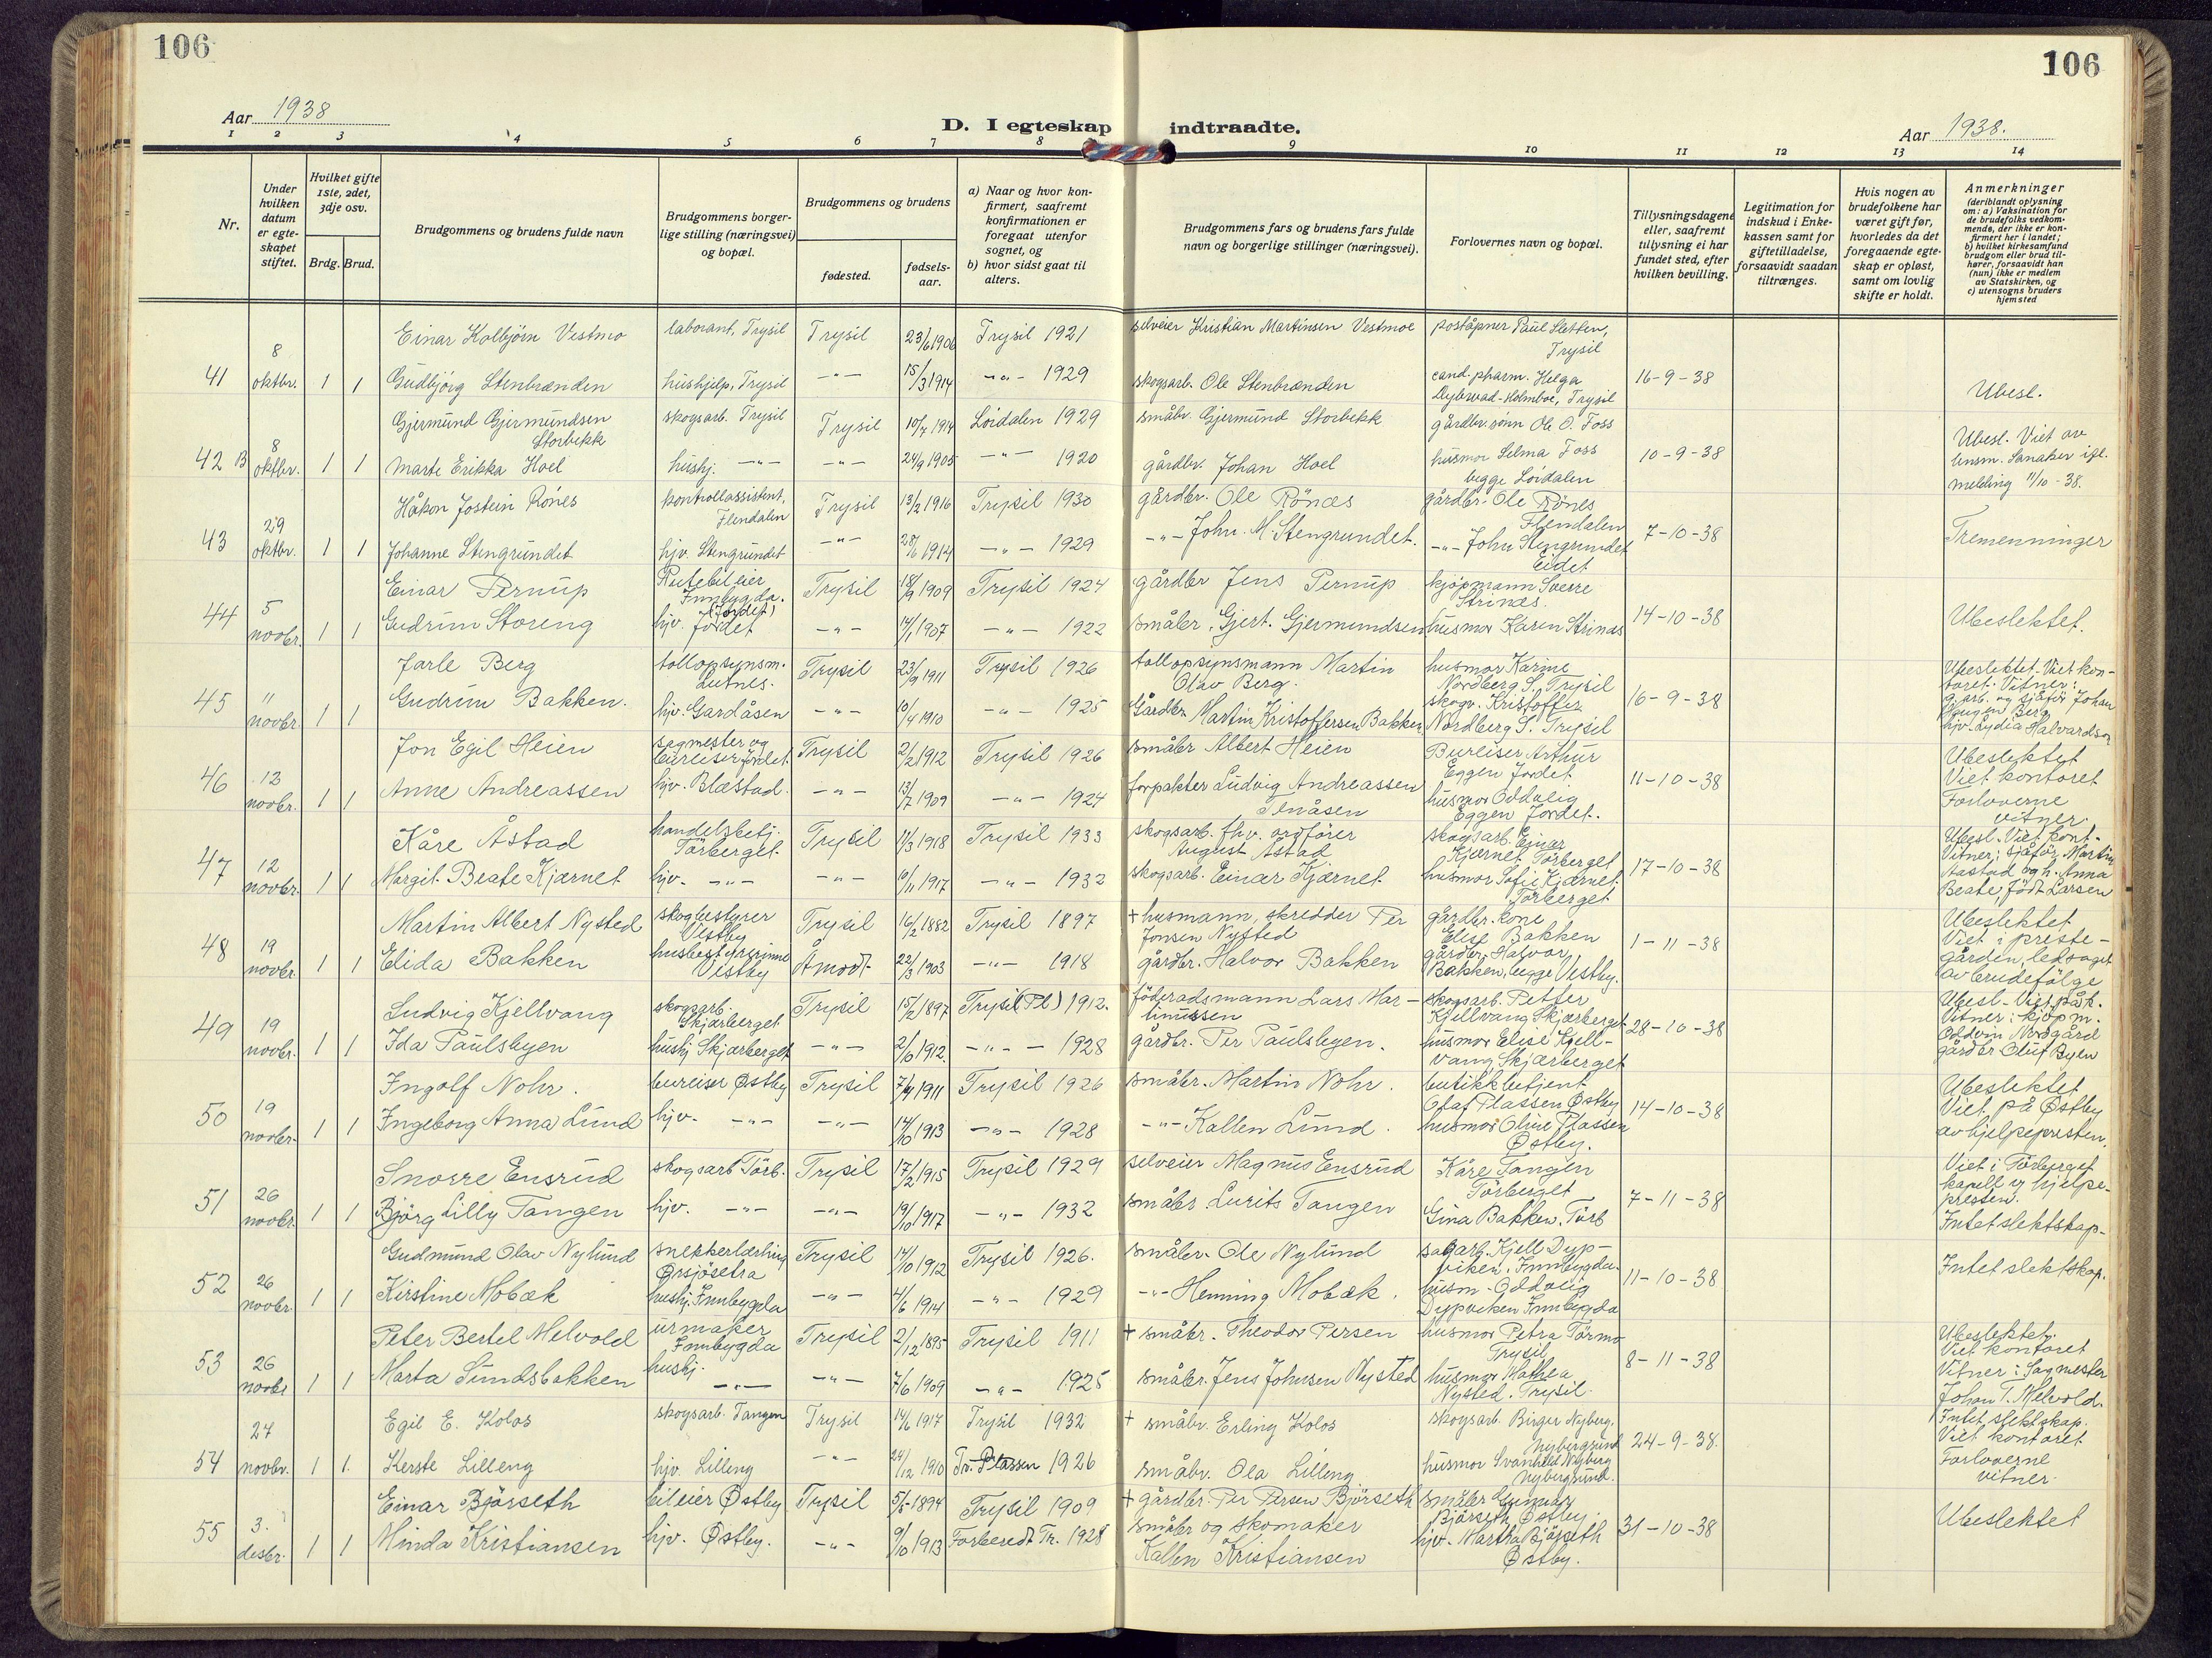 106
106
Aar 1938
D. I egteskap indtraadte.
Aar 1938.
1 2 3 4 5 6 7 8 9 10 11 12 13 14
Nr.
Under hvilken datum er egteskapet stiftet.
Hvilket gifte 1ste, 2det, 3dje osv.
Brdg. Brud.
Brudgommens og brudens fulde navn
Brudgommens borgerlige stilling (næringsvei) og bopæl.
Brudgommens og brudens
fødested.
fødselsaar.
a) Naar og hvor konfirmert, saafremt konfirmationen er foregaat utenfor sognet, og
b) hvor sidst gaat til alters.
Brudgommens fars og brudens fars fulde navn og borgerlige stillinger (næringsvei).
Forlovernes navn og bopæl.
Tillysningsdagene eller, saafremt tillysning ei har fundet sted, efter hvilken bevilling.
Legitimation for indskud i Enkekassen samt for giftetilladelse, forsaavidt saadan tiltrænges.
Hvis nogen av brudefolkene har været gift før, hvorledes da det foregaaende egteskap er opløst, samt om lovlig skifte er holdt.
Anmerkninger (deriblandt oplysning om: a) Vaksination for de brudefolks vedkommende, der ikke er konfirmert her i landet; b) hvilket kirkesamfund brudgom eller brud tilhører, forsaavidt han (hun) ikke er medlem av Statskirken, og c) utensogns bruders hjemsted
Einar Kolbjörn Vestmo laborant, Trysil Trysil 23/6 1906 Trysil 1921 selveier Kristian Martinsen Vestmoe poståpner Paul Sletten, Trysil
41 8 oktbr. 1 1 Gudbjörg Stenbrænden hushjelp, Trysil -"- 15/3 1914 -"- 1929 skogsarb. Ole Stenbrænden cand. pharm. Helga Dybwad-Holmboe, Trysil 16-9-38 Ubesl.
Gjermund Gjermundsen Storbekk skogsarb. Trysil Trysil 10/7 1914 Lördalen 1929 småbr. Gjermund Storbekk gårdbr. sönn Ole O. Foss
42 B 8 oktbr. 1 1 Marte Erikka Hoel hushj. -"- -"- 24/9 1905 -"- 1920 gårdbr. Johan Hoel husmor Selma Foss begge Lördalen 10-9-38 Ubesl. Viet av Sanaker ifl. melding 11/10-38.
Håkon Jostein Rönes kontrollassistent, Flendalen Trysil 13/2 1916 Trysil 1930 gårdbr. Ole Rönæs gårdbr. Ole Rönes Flendalen
43 29 oktbr. 1 1 Johanne Stengrundet hjv. Stengrundet -"- 28/6 1914 -"- 1929 -"- John M. Stengrundet. -"- John Stengrundet Eidet 7-10-38 Tremenninger
Einar Pernup Rutebileier Innbygda. (Jordet) Trysil 18/9 1909 Trysil 1924 gårdbr Jens Pernup kjöpmann Sverre Strinæs.
44 5 novbr. 1 1 Gudrun Storeng hjv. Jordet -"- 14/1 1907 -"- 1922 småbr. Gjert. Gjermundsen husmor Karen Strinæs 14-10-38 Ubeslektet.
Jarle Berg tollopsynsm. Lutnes. Trysil 23/9 1911 Trysil 1926 tollopsynsmann Martin Olav Berg. husmor Karine Nordberg S. Trysil
45 " novbr. 1 1 Gudrun Bakken. hjv. Gardåsen -"- 10/4 1910 -"- 1925 Gårdbr. Martin Kristoffersen Bakken skogv. Kristoffer Nordberg S. Trysil 16-9-38 Ubeslektet. Viet kontoret. Vitner: og sjåför Johan Haugen Berg hjv. Lydia Halvardson
Jon Egil Heien sagmester og bureiser Jordet Trysil 2/2 1912 Trysil 1926 småbr Albert Heien Bureiser Arthur Eggen Jordet
46 12 novbr. 1 1 Anne Andreassen hjv. Blæstad. -"- 13/7 1909 -"- 1924 forpakter Ludvig Andreassen husmor Oddveig Eggen Jordet. 11-10-38 Ubeslektet Viet kontoret Forloverne vitner.
Kåre Åstad handelsbetj. Törberget. Trysil 11/3 1918 Trysil 1933 skogsarb. fhv. ordförer August Åstad skogsarb. Einar Kjærnet Törberget
47 12 novbr. 1 1 Margit Beate Kjærnet hjv. -"- -"- 10/11 1917 -"- 1932 skogsarb. Einar Kjærnet. husmor Sofie Kjærnet Törberget 17-10-38 Ubesl. Viet kont. Vitner: sjåför Martin Aastad og h. Anna Beate, född Larsen
Martin Albert Nysted skogbestyrer Vestby Trysil 16/2 1882 Trysil 1897 + husmann, skredder Per Jonsen Nysted gårdbr. kone Elise Bakken
48 19 novbr. 1 1 Elida Bakken husbestyrerinne Vestby Åmodt 22/3 1903 -"- 1918 gårdbr. Halvor Bakken gårdbr. Halvor Bakken, begge Vestby. 1-11-38 Ubeslektet Viet i prestegården, ledsaget av brudefölge
Ludvig Kjellvang skogsarb. Skjærberget Trysil 15/2 1897 Trysil (Pl) 1912. föderadsmann Lars Martinussen skogsarb. Petter Kjellvang Skjærberget
49 19 novbr. 1 1 Ida Paulsbyen hushj Skjærberget -"- 2/6 1912. -"- 1928 gårdbr. Per Paulsbyen. husmor Elise Kjellvang, Skjærberget 28-10-38 Ubesl. Viet på k. Vitner: kjöpm. Oddvin Nordgård gårdbr Oluf Byen
Ingolf Nohr. bureiser Østby Trysil 7/9 1911 Trysil 1926 småbr. Martin Nohr. butikkbetjent Olaf Plassen Østby
50 19 novbr. 1 1 Ingeborg Anna Lund hjv. -"- -"- 14/10 1913 -"- 1928 -"- Kallen Lund. husmor Oline Plassen Østby. 14-10-38 Ubeslektet Viet på Østby av hjelpepresten.
Snorre Ensrud skogsarb Törb. Trysil 17/2 1915 Trysil 1929 selveier Magnus Ensrud Kåre Tangen Törberget
51 26 novbr. 1 1 Björg Lilly Tangen hjv. -"- -"- 19/10 1917 -"- 1932 småbr. Lurits Tangen Gina Bakken. Törb 7-11-38 Viet i Törberget kapell v hjelpepresten. Intet slektskap.
Gudmund Olav Nylund snekkerlærling Ørsjösetra Trysil 14/10 1912 Trysil 1926. småbr. Ole Nylund sagarb. Kjell Dypviken. Innbygda.
52 26 novbr. 1 1 Kirstine Mobæk hushj. Innbygda -"- 4/6 1914 -"- 1929 -"- Henning Mobæk. husm. Oddveig Dypviken Innbygda 11-10-38 Intet slektskap.
Peter Bertel Melvold urmaker Innbygda Trysil 2/12 1895 Trysil 1911 + småbr. Theodor Persen husmor Petra Törmo Trysil
53 26 novbr 1 1 Marta Sundsbakken hushj. -"- -"- 7/6 1909 -"- 1925 småbr. Jens Johnsen Nysted husmor Mathea Nysted. Trysil. 8-11-38 Ubeslektet. Viet kontoret Vitner: Sagmester Johan T. Melvold.
Egil E. Kolos skogsarb. Tangen Trysil 14/6 1917 Trysil 1932 + småbr. Erling Kolos skogsarb. Birger Nyberg, Nybergsund
54 27 novbr. 1 1. Kerste Lilleng hjv. Lilleng -"- 24/12 1910 Tr. Plassen 1926 småbr. Ola Lilleng husmor Svanhild Nyberg Nybergsund. 24-9-38. Intet slektskap. Viet kontoret Forloverne vitner.
Einar Björseth bileier Østby Trysil 5/5-1894 Trysil 1909 + gårdbr. Per Persen Björseth småbr Gunnar Björseth, Østby
55 3. desbr. 1 1 Minda Kristiansen hjv. Østby. -"- 9/10 1913 Forberedt Tr. 1928 småbr og skomaker Kallen Kristiansen hjv. Martha Björseth Østby. 31-10-38 Ubeslektet